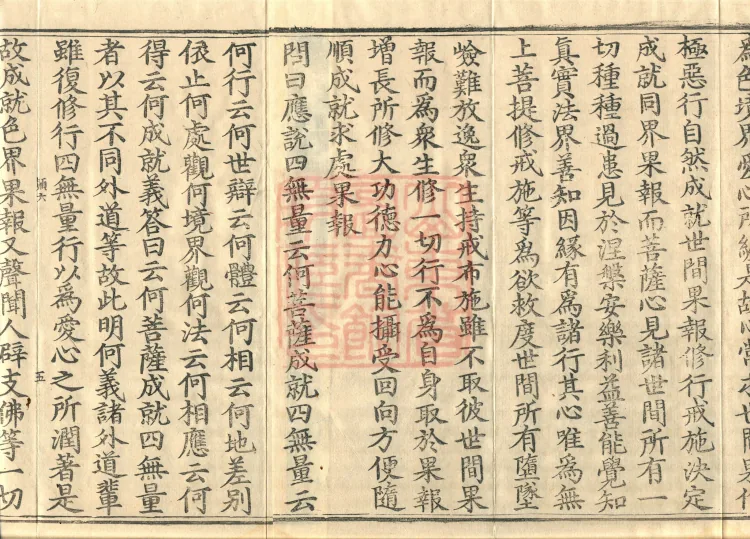 極惡行自然成就世間果報修行戒施決定
成就同界果報而菩薩心見諸世間所有一
切種種過患見於涅槃安樂利益善能覺知
眞實法界善知因緣有爲諸行其心唯爲無
上菩提修戒施等爲欲救度世間所有墮墜
嶮難放逸衆生持戒布施雖不取彼世間果
報而爲衆生修一切行不爲自身取於果報
增長所修大功德力心能攝受回向方便隨
順成就求處果報
問曰應說四無量云何菩薩成就四無量云
何行云何世辯云何體云何相云何地差別
依止何處觀何境界觀何法云何相應云何
得云何成就義答曰云何菩薩成就四無量
者以其不同外道等故此明何義諸外道輩
雖復修行四無量行以爲愛心之所潤著是
五
故成就色界果報又聲聞人辟支佛等一切